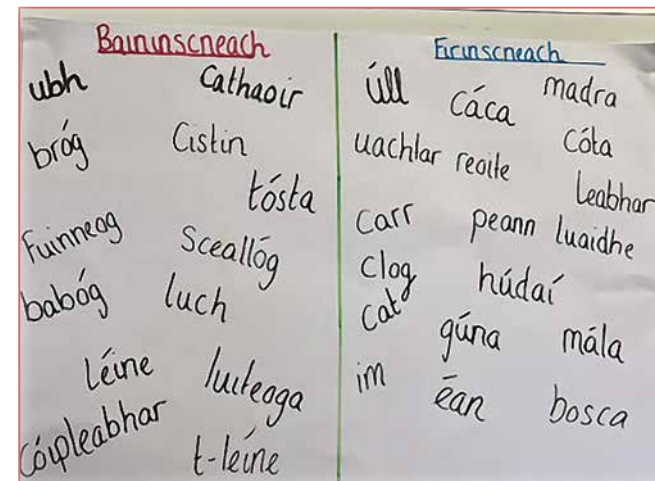 Baininscneach
ubh Cathaoir
bróg Cistin
tósta
Fuinneog Sceallóg
babóg luch
Léine luiteoga
cóipleabhar t-léine
Firinscneach
úll cáca madra
cóta
uachtar reoite leabhar
carr peann luaidhe
clog húdaí
cat gúna mála
im éan bosca